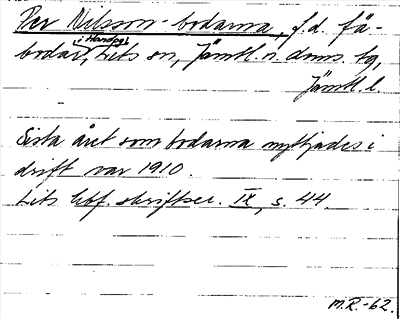 Per Nilsson-bodarna, f.d. få-
bodar, i Handog, Lits sn, Jämtl. n. doms. tg,
Jämtl. l.
Sista året som bodarna nyttjades i
drift var 1910.
Lits hbf. skriftser. IX, s. 44
M.R.-62.